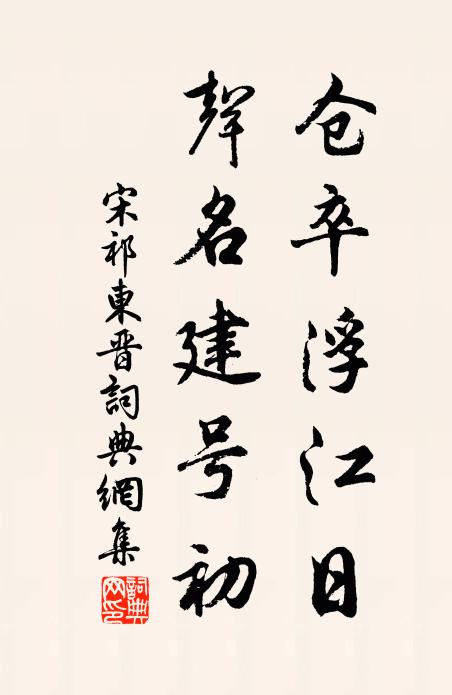 仓卒浮江日
聲名建号初
宋祁東晋詞典網集
詞典网印